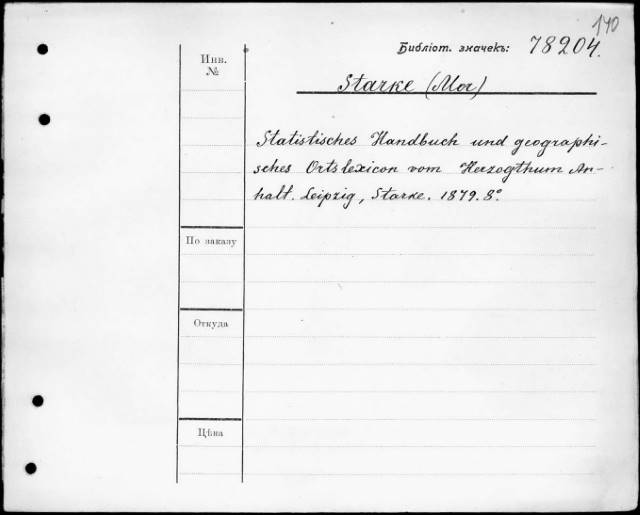 140
Библіот. значекъ: 78204.
Инв.
№
Starke (Mor)
Statistisches Handbuch und geographi-
sches Ortslexicon vom Herzogthum An-
halt. Leipzig, Starke. 1879. 8°.
По заказу
Откуда
Цѣна